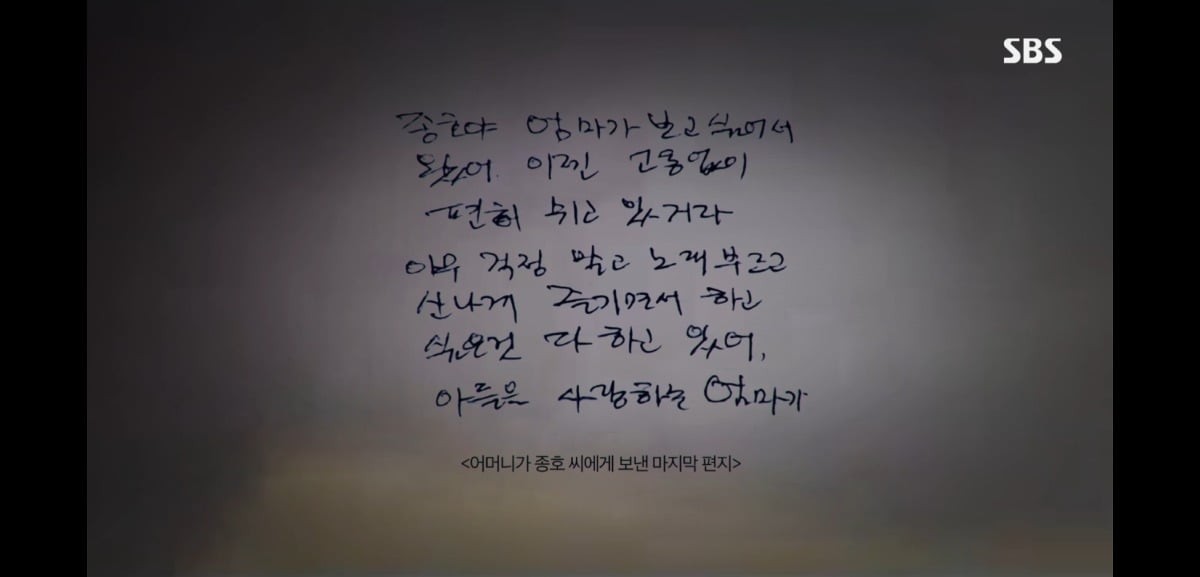 SBS
종호야 엄마가 보고싶어서
왔어. 이젠 고통없이
편히 쉬고 있거라
아무 걱정 말고 노래부르고
신나게 즐기면서 하고
싶은건 다 하고 있어,
아들을 사랑하는 엄마가
<어머니가 종호 씨에게 보낸 마지막 편지>